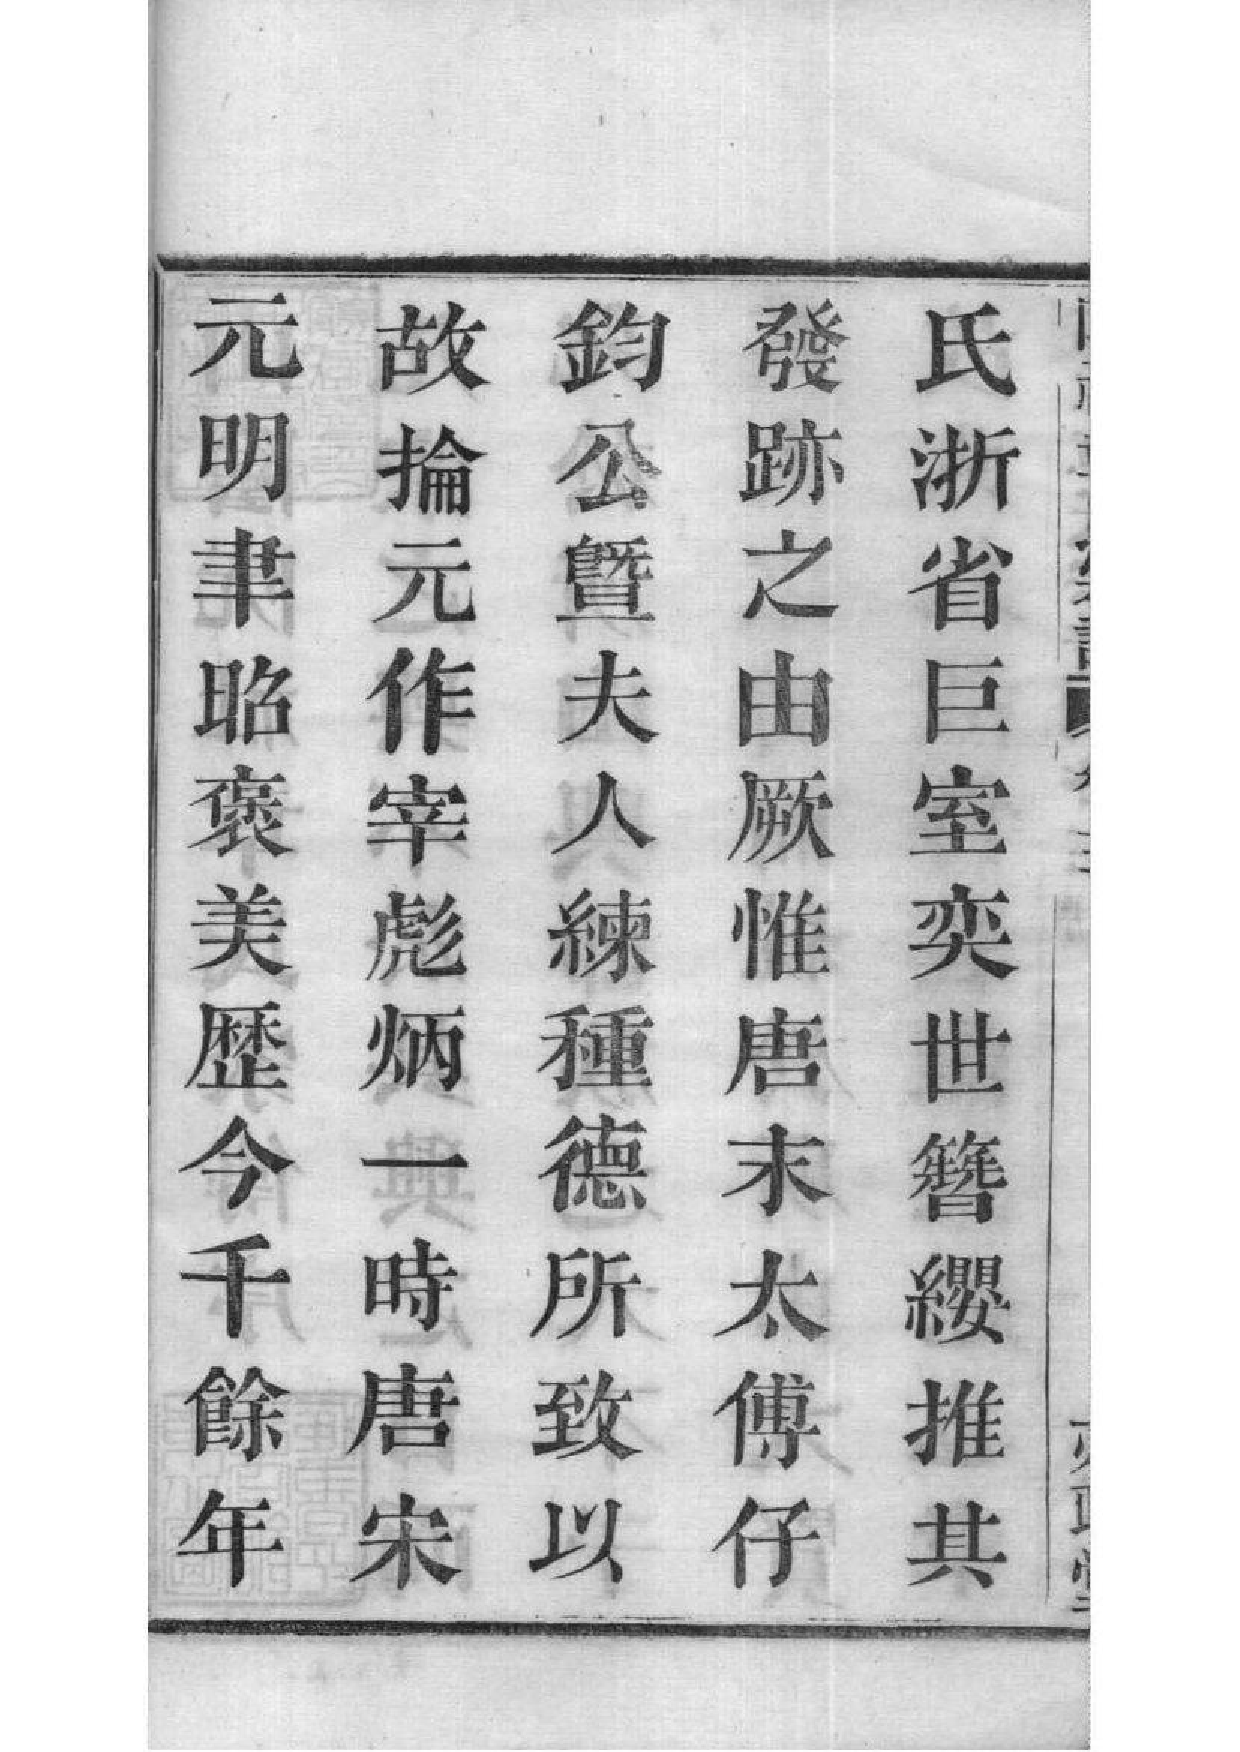 氏浙省巨室奕世簪纓推其
發跡之由厥惟唐末太傅仔
鈞公曁夫人練種德所致以
故掄元作宰彪炳一時唐宋
元明聿昭褒美歴今千餘年